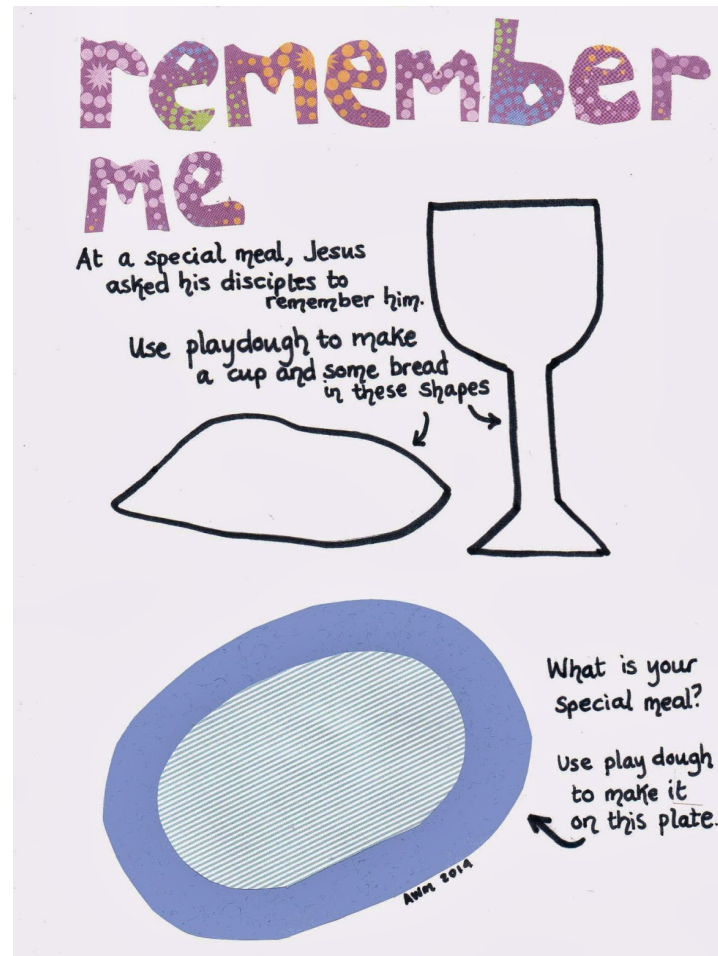 remember
me
At a special meal, Jesus
asked his disciples to
remember him.
Use playdough to make
a cup and some bread
in these shapes
What is your
special meal?
Use play dough
to make it
on this plate.
AWM 2014